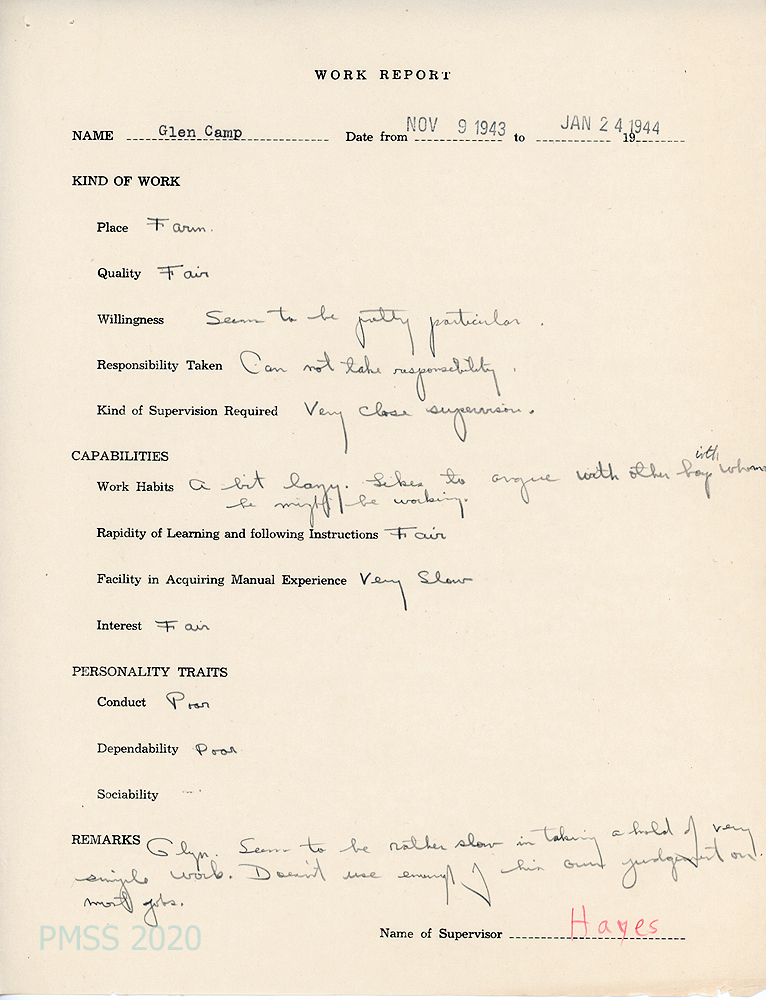 WORK REPORT
NAME Glen Camp Date from NOV 9 1943 to JAN 24 1944 19
KIND OF WORK
Place Farm.
Quality Fair
Willingness Seem to be pretty particular.
Responsibility Taken Can not take responsibility.
Kind of Supervision Required Very close supervision.
CAPABILITIES
with
Work Habits A bit lazy. Likes to argue with other boy whom
he might be working.
Rapidity of Learning and following Instructions Fair
Facility in Acquiring Manual Experience Very Slow
Interest Fair
PERSONALITY TRAITS
Conduct Poor
Dependability Poor
Sociability
REMARKS Glyn. Seem to be rather slow in taking a hold of very
simple work. Doesn't use enough of his own judgement on
most jobs.
Name of Supervisor Hayes
PMSS 2020